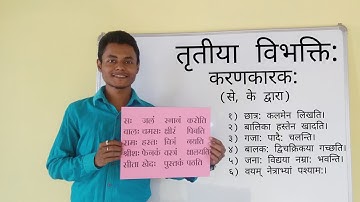 तृतीया विभक्ति:
करणकारक:
(से, के द्वारा)
१) छात्र: कलमेन लिखति।
२) बालिका हस्तेन खादति।
३) गजा: पादै: चलन्ति।
४) बालक: द्विचक्रिकया गच्छति।
५) जना: विद्यया नम्रा: भवन्ति।
६) वयम् नेत्राभ्यां पश्याम:।
स: जलं स्नानं करोति
बाल: चमस: क्षीरं पिबति
राम: हस्त: चित्रं
श्रीश: फेनकं वस्त्रं क्षालयति
सीता खेद: पुस्तकं पठति